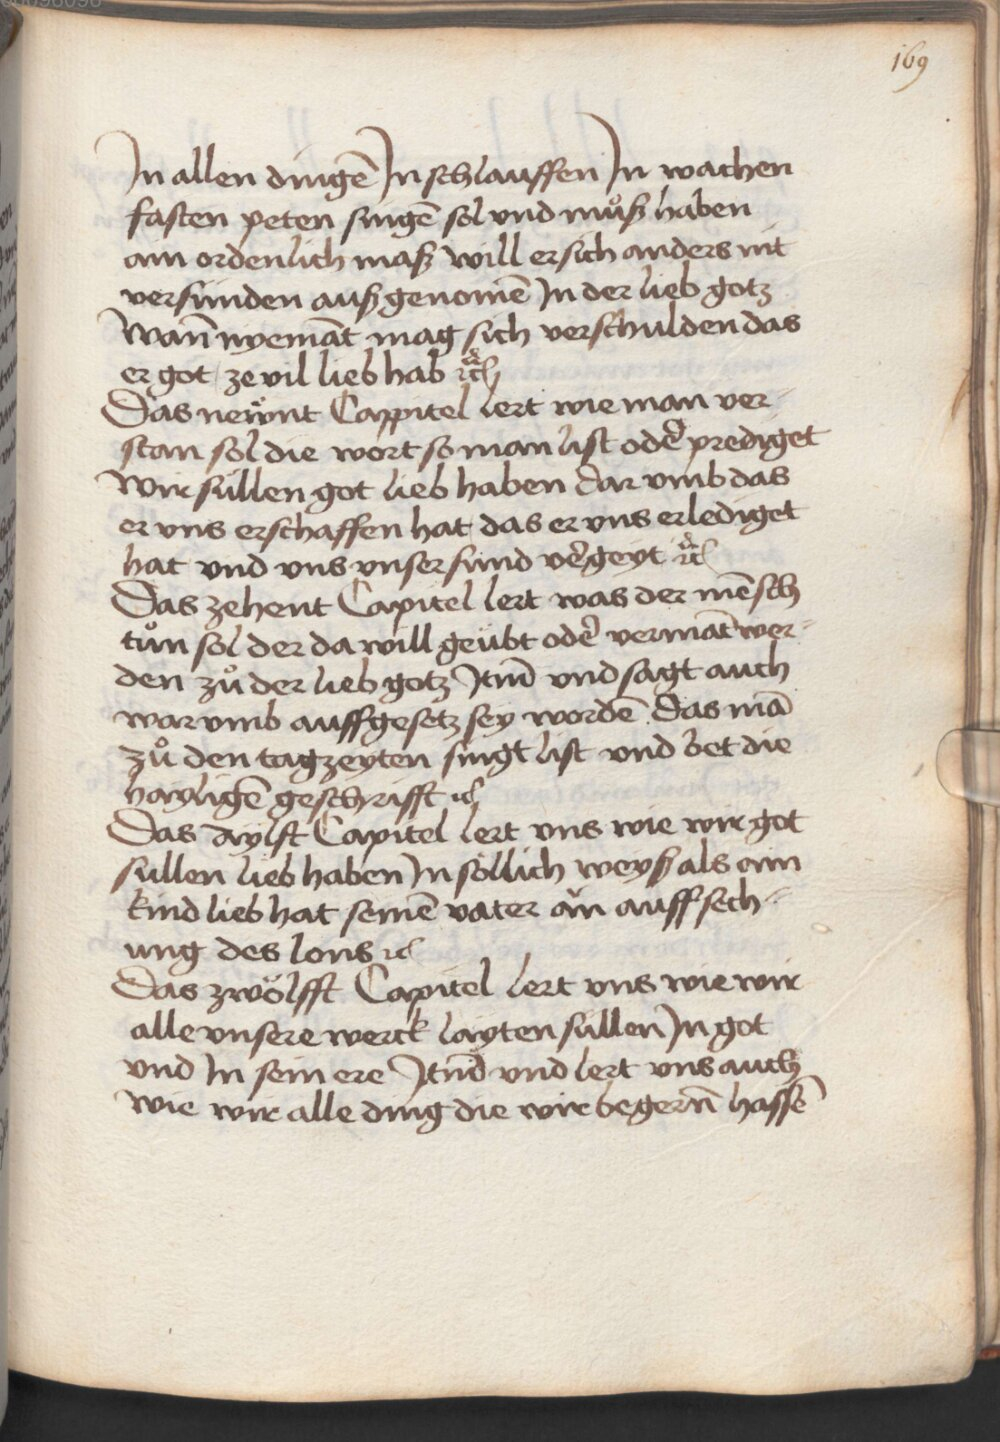 169
In allen dingē In schlauffen In wachen
fasten peten singē sol vnd můß haben
ain ordenlich maß will er sich anders nit
versünden auß genomē In der lieb gotz
Wan̄ nyemāt mag sich verschulden das
er got ze vil lieb hab ꝛc̄
Das neẅnt Cappitel lert wie man ver-
stan sol die wort so man list oder̄ prediget
Wir süllen got lieb haben Dar vmb das
er vns erschaffen hat das er vns erlediget
hat vnd vns vnser sund ver̄geyt ꝛc̄
Das zehent Capitel lert was der mēsch
tůn sol der da will geübt oder̄ vermāt wer-
den zů der lieb gotz Itm̄ vnd sagt auch
war vmb auffgesetz sey wordē Das mā
zů den tagzeyten singt list vnd bet die
hayligē geschrifft ꝛc
Das Aylft Capitel lert vns wie wir got
sullen lieb haben In söllich weyß als ain
kind lieb hat seinē vater ǎn auffsech-
ung des lons ꝛc
Das zwölfft Capitel lert vns wie wir
alle vnsere werck layten süllen In got
vnd In sein ere Itm̄ vnd lert vns auch
wie wir alle ding die wir begern̄ hassē